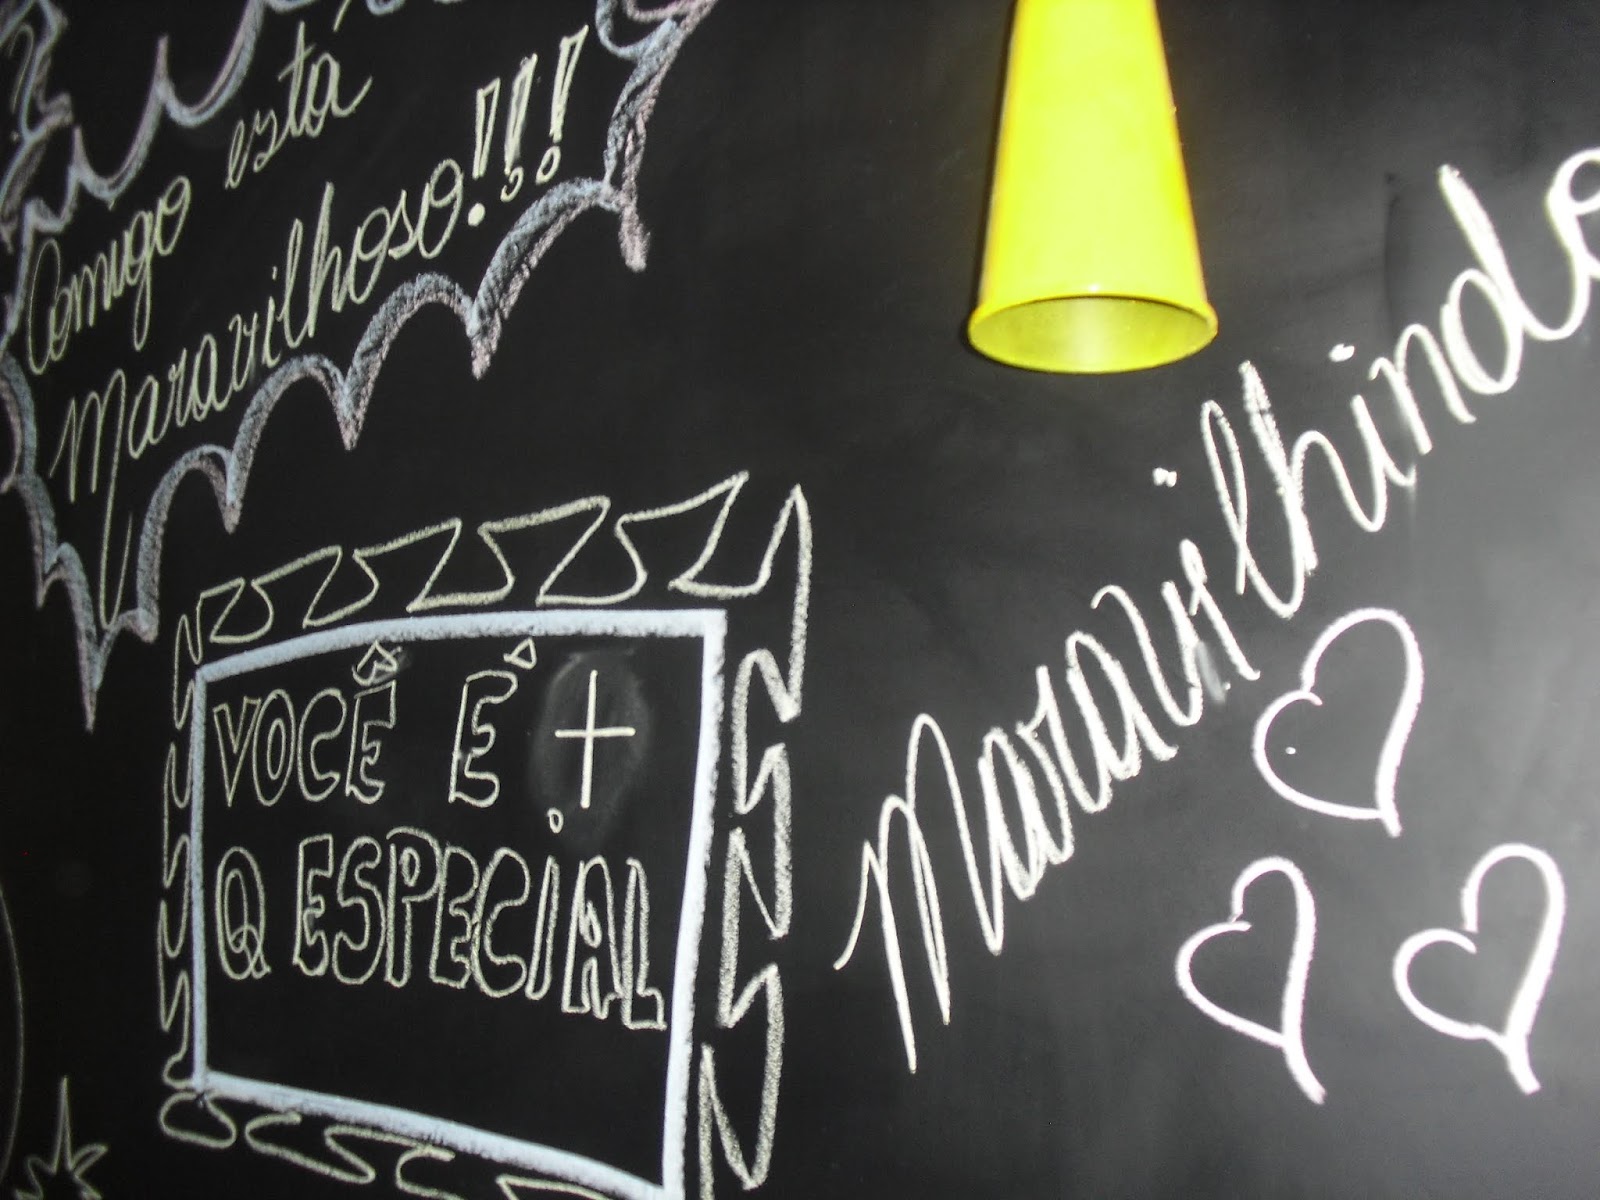 Comigo está
Maravilhoso!!!
VOCÊ É +
Q ESPECIAL
Maravilhindo